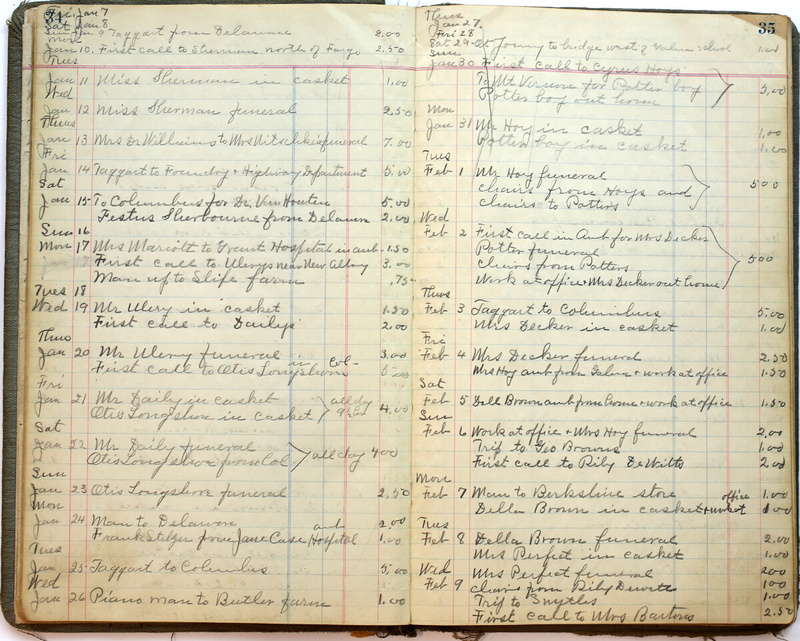 34
Fri, Jan 7
Sat Jan 8
Sun Jan 9 Taggart from Delaware 2.00
Mon
Jan 10. First call to Sherman north of Fargo 2.50
Tues
Jan 11 Miss Sherman in casket 1.00
Wed
Jan 12 Miss Sherman funeral 2.50
Thurs
Jan 13 Mrs Dr Williams to Mrs Nitschkes funeral 7.00
Fri
Jan 14 Taggart to Foundry + Highway Department 5.00
Sat
Jan 15 To Columbus for Dr. Van Houten 5.00
Festus Sherbourne from Delawn 2.00
Sun 16
Mon 17 Mrs Mariott to Grant Hospital in amb. 1.50
17 First call to Ulerys near New Albany 3.00
Man up to Slife farm .75
Tues 18
Wed 19 Mr Ulery in casket 1.50
First call to Dailys 2.00
Thus
Jan 20 Mr Ulery funeral 3.00
First call to Otis Longshore in Col- 5.00
Fri
Jan 21 Mr Daily in casket all day
Otis Longshore in casket 4.00
Sat
Jan 22 Mr Daily funeral
Otis Longshore from Col all day 400
Sun
Jan 23 Otis Longshore funeral 2.50
Mon
Jan 24 Man to Delawn and 2.00
Frank Stelzer from Jane Case Hospital 1.00
Tues
Jan 25 Taggart to Columbus 5.00
Wed
Jan 26 Piano man to Butler farm 1.00
35
Thus
Jan 27.
Fri 28
Sat 29 to bridge west of Galena school 1.00
Sun
Jan 30 First call to Cyrus Hoys
To Mt Vernon for Potter boy 5.00
Potter boy out home
Mon
Jan 31 Mr Hoy in casket 1.00
Potter boy in casket 1.00
Tues
Feb 1 Mr Hoy funeral
chairs from Hoys and 500
chairs to Potters
Wed
Feb 2 First call in Amb for Mrs Decker
Potter funeral
Chairs from Potters 500
Work at office + Mrs Decker out home
Thus
Feb 3 Taggart to Columbus 5.00
Mrs Decker in casket 1.00
Fri
Feb 4 Mrs Decker funeral 2.50
Mrs Hoy amb from Galena + work at office 1.50
Sat
Feb 5 Dell Brown amb from home + work at office 1.50
Sun
Feb 6 Work at office + Mrs Hoy funeral 2.00
Trip to Geo Browns 1.00
First call to Rily DeWitts 2.00
Mon
Feb 7 Man to Berkshire store 1.00
Della Brown in casket + work at office 1.00
Tues
Feb 8 Della Brown funeral 2.00
Mrs Perfect in casket 1.00
Wed
Mrs Perfect funeral 200
Feb 9 Chairs from Rily Dewitts 100
Trip to Smyths 1.00
First call to Mrs Bartons 2.50